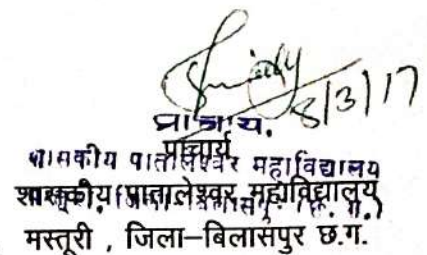 8/3/17
प्राचार्य
प्राचार्य
शासकीय पातालेश्वर महाविद्यालय
शासकीय पातालेश्वर महाविद्यालय
मस्तूरी , जिला-बिलासपुर छ.ग.